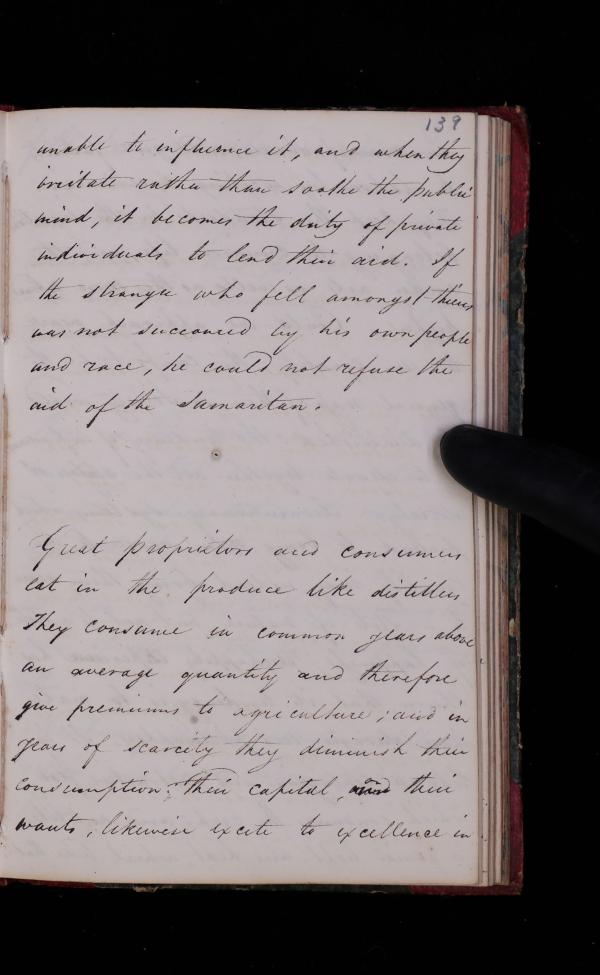 139
unable to influence it, and when they
irritate rather than soothe the public
mind, it becomes the duty of private
individuals to lend their aid. If
the stranger who fell amongst thieves
was not succoured by his own people
and race, he could not refuse the
aid of the Samaritan.
Great proprietors and consumers
eat in the produce like distillers
They consume in common years above
an average quantity and therefore
give premiums to agriculture; and in
years of scarcity they diminish their
consumption. Their capital, and their
wants, likewise excite to excellence in